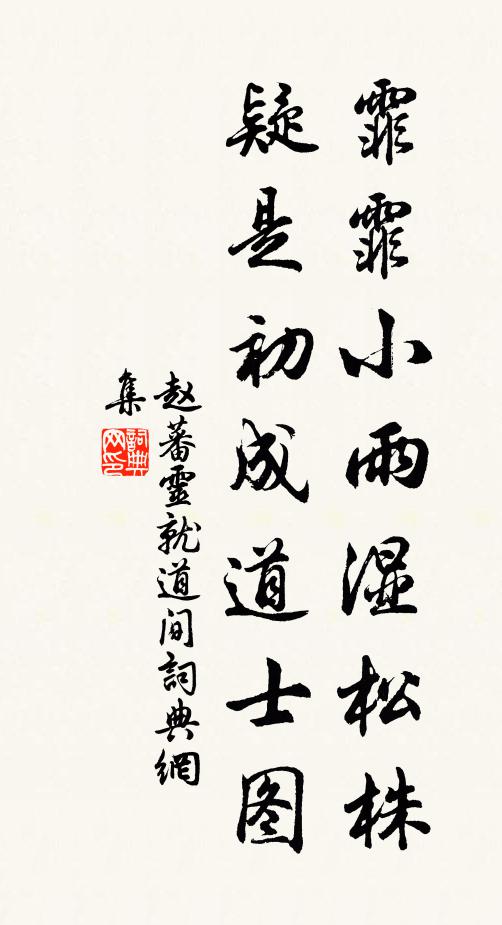 霏霏小雨湿松株
疑是初成道士图
赵蕃靈就道间詞典網
集
詞典网印